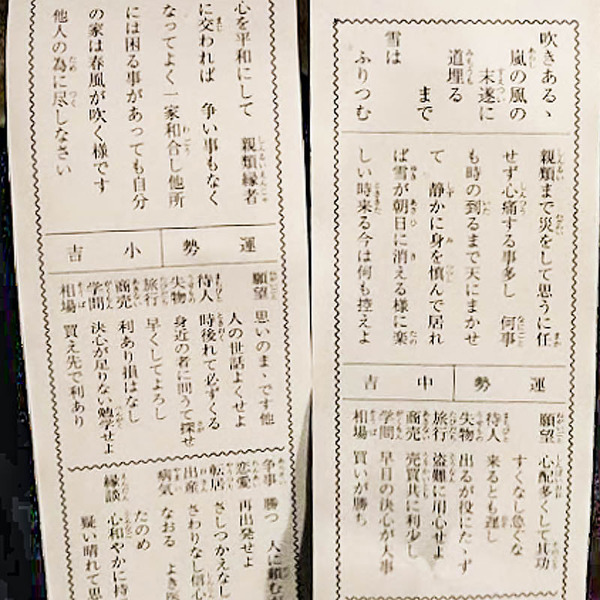 吹きあるゝ
嵐の風の
末遂に
道埋る
まで
雪は
ふりつむ
親類まで災をして思うに任
せず心痛する事多し 何事
も時の到るまで天にまかせ
て 静かに身を慎んで居れ
ば雪が朝日に消える様に楽
しい時来る今は何も控えよ
運勢 中吉
願望 心配多くして其功
すくなし急ぐな
待人 来るとも遅し
失物 出るが役にたゝず
旅行 盗難に用心せよ
商売 売買共に利少し
学問 早目の決心が大事
相場 買いが勝ち
心を平和にして 親類縁者
に交われば 争い事もなく
なってよく一家和合し他所
には困る事があっても自分
の家は春風が吹く様です
他人の為に尽しなさい
運勢 小吉
願望 思いのまゝです他
人の世話よくせよ
待人 時後れて必ずくる
失物 身近の者に問うて探せ
旅行 早くしてよろし
商売 利あり損はなし
学問 決心が足りない勉学せよ
相場 買え先で利あり
争事 勝つ 人に頼む
恋愛 再出発せよ
転居 さしつかえなし
出産 さわりなし信心
病気 なおる よき医
たのめ
縁談 心和やかに持
疑い晴れて思